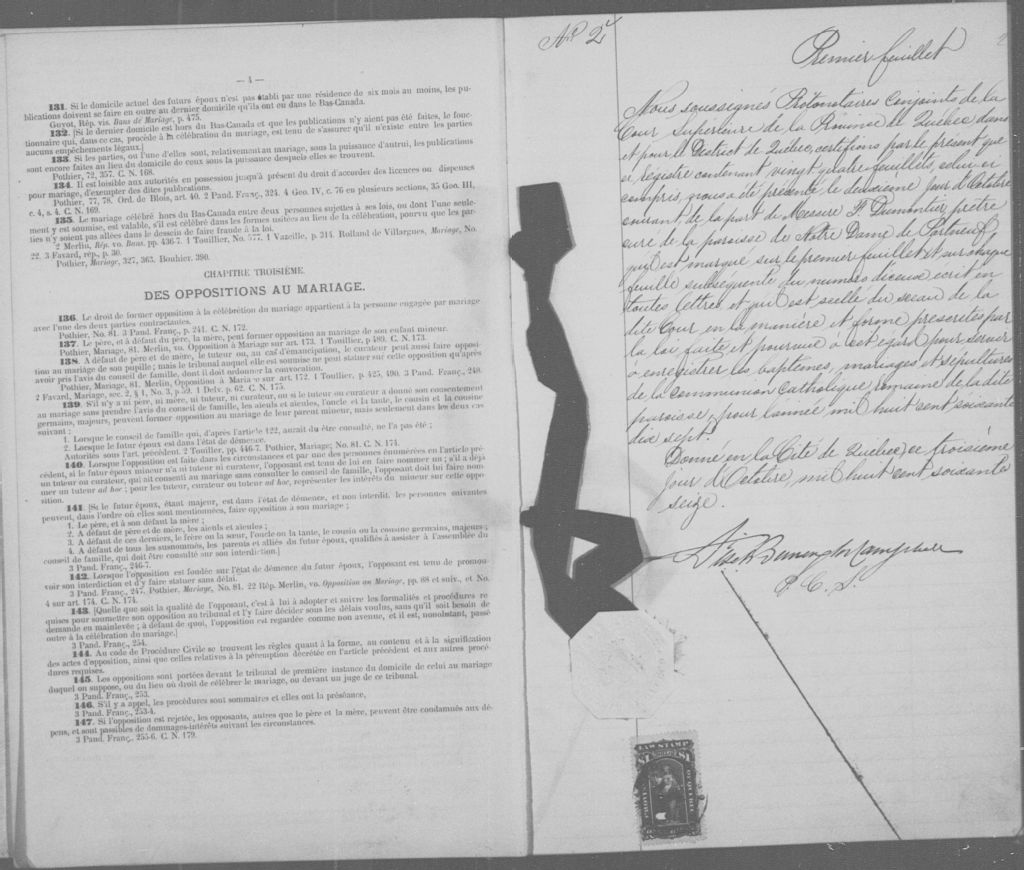 — 4 —
131. Si le domicile actuel des futurs époux n'est pas établi par une résidence de six mois au moins, les pu-
blications doivent se faire en outre au dernier domicile qu'ils ont eu dans le Bas-Canada.
Guyot, Rép. vis. Bans de Mariage, p. 475.
132. [Si le dernier domicile est hors du Bas-Canada et que les publications n'y aient pas été faites, le fonc-
tionnaire qui, dans ce cas, procède à la célébration du mariage, est tenu de s'assurer qu'il n'existe entre les parties
aucuns empêchements légaux.]
133. Si les parties, ou l'une d'elles, sont, relativement au mariage, sous la puissance d'autrui, les publications
sont encore faites au lieu du domicile de ceux sous la puissance desquels elles se trouvent.
Pothier, 72, 357. C. N. 168.
134. Il est loisible aux autorités en possession jusqu'à présent du droit d'accorder des licences ou dispenses
pour mariage, d'exempter des dites publications.
Pothier, 77, 78. Ord. de Blois, art. 40. 2 Pand. Franç., 324. 4 Geo. IV, c. 76 en plusieurs sections, 35 Geo. III,
c. 4, s. 4. C. N. 169.
135. Le mariage célébré hors du Bas-Canada entre deux personnes sujettes à ses lois, ou dont l'une seule-
ment y est soumise, est valable, s'il est célébré dans les formes usitées au lieu de la célébration, pourvu que les par-
ties n'y soient pas allées dans le dessein de faire fraude à la loi.
2 Merlin, Rép. vo. Bans. pp. 436-7. 1 Touillier, No. 577. 1 Vazeille, p. 214. Rolland de Villargues, Mariage, No.
22. 3 Favard, rép., p. 30.
Pothier, Mariage, 327, 363. Bouhier. 390.
CHAPITRE TROISIÈME.
DES OPPOSITIONS AU MARIAGE.
136. Le droit de former opposition à la célébration du mariage appartient à la personne engagée par mariage
avec l'une des deux parties contractantes.
Pothier, No. 81. 3 Pand. Franç., p. 241. C. N. 172.
137. Le père, et à défaut du père, la mère, peut former opposition au mariage de son enfant mineur.
Pothier, Mariage, 81. Merlin, vo. Opposition à Mariage sur art. 173. 1 Touillier, p. 489. C. N. 173.
138. A défaut de père et de mère, le tuteur ou, au cas d'émancipation, le curateur peut aussi faire opposi-
tion au mariage de son pupille; mais le tribunal auquel elle est soumise ne peut statuer sur celle opposition qu'après
avoir pris l'avis du conseil de famille, dont il doit ordonner la convocation.
Pothier, Mariage, 81. Merlin, Opposition à Mariage sur art. 172. 1 Touillier, p. 425, 490. 3 Pand. Franç., 248.
2 Favard, Mariage, sec. 2, § 1, No. 3, p. 59. 1 Delv. p. 62. C. N. 175.
139. S'il n'y a ni père, ni mère, ni tuteur, ni curateur, ou si le tuteur ou curateur a donné son consentement
au mariage sans prendre l'avis du conseil de famille, les aïeuls et aïeules, l'oncle et la tante, le cousin et la cousine
germains, majeurs, peuvent former opposition au mariage de leur parent mineur, mais seulement dans les deux cas
suivant :
1. Lorsque le conseil de famille qui, d'après l'article 122, aurait du être consulté, ne l'a pas été ;
2. Lorsque le futur époux est dans l'état de démence.
Autorités sous l'art. précédent. 2 Touiller, pp. 446-7. Pothier, Mariage; No. 81. C. N. 174.
140. Lorsque l'opposition est faite dans les circonstances et par une des personnes énumérées en l'article pré-
cédent, si le futur époux mineur n'a ni tuteur ni curateur, l'opposant est tenu de lui en faire nommer un ; s'il a déjà
un tuteur ou curateur, qui ait consenti au mariage sans consulter le conseil de famille, l'opposant doit lui faire nom-
mer un tuteur ad hoc ; pour les tuteur, curateur ou tuteur ad hoc, représenter les intérêts du mineur sur cette oppo-
sition.
141. [Si le futur époux, étant majeur, est dans l'état de démence, et non interdit, les personnes suivantes
peuvent, dans l'ordre où elles sont mentionnées, faire opposition à son mariage ;
1. Le père, et à son défaut la mère ;
2. A défaut de père et de mère, les aïeuls et aïeules ;
3. A défaut de ces derniers, le frère ou la sœur, l'oncle ou la tante, le cousin ou la cousine germains, majeurs ;
4. A défaut de tous les susnommés, les parents et alliés du futur époux, qualifiés à assister à l'assemblée du
conseil de famille, qui doit être consulté sur son interdiction.]
3 Pand. Franç., 246-7.
142. Lorsque l'opposition est fondée sur l'état de démence du futur époux, l'opposant est tenu de promou-
voir son interdiction et d'y faire statuer sans délai.
3 Pand. Franç., 247. Pothier, Mariage, No. 81. 22 Rép. Merlin, vo. Opposition au Mariage, pp. 68 et suiv., et No.
4 sur art. 174. C. N. 174.
143. [Quelle que soit la qualité de l'opposant, c'est à lui à adopter et suivre les formalités et procédures re
quises pour soumettre son opposition au tribunal et l'y faire décider sous les délais voulus, sans qu'il soit besoin de
demande en mainlevée ; à défaut de quoi, l'opposition est regardée comme non avenue, et il est, nonobstant, passé
outre à la célébration du mariage.]
3 Pand. Franç., 254.
144. Au code de Procédure Civile se trouvent les règles quant à la forme, au contenu et à la signification
des actes d'opposition, ainsi que celles relatives à la péremption décrétée en l'article précédent et aux autres procé-
dures requises.
145. Les oppositions sont portées devant le tribunal de première instance du domicile de celui au mariage
duquel on suppose, ou du lieu où droit de célébrer le mariage, ou devant un juge de ce tribunal.
3 Pand. Franç., 253.
146. S'il y a appel, les procédures sont sommaires et elles ont la préséance.
3 Pand. Franç., 253-4.
147. Si l'opposition est rejetée, les opposants, autres que le père et la mère, peuvent être condamnés aux dé-
pens, et sont passibles de dommages-intérêts suivant les circonstances.
3 Pand. Franç., 255-6. C. N. 179.
No 2
Premier feuillet
Nous soussignés Protonotaires Conjoints de la
Cour Supérieure de la Province de Québec dans
et pour le District de Québec, certifions par le présent que
ce registre contenant vingt quatre feuillets, celui-ci
compris, nous a été présenté le deuxième jour d'Octobre
courant de la part de Messire F. Dumontier, prêtre
curé de la paroisse de Notre Dame de Portneuf,
qu'il est marqué sur le premier feuillet et sur chaque
feuille subséquente du numero d'iceux écrit en
toutes lettres et qu'il est scellé du sceau de la
dite Cour en la manière et forme prescrites par
la loi faite et pourvue à cet égard pour servir
à enregistrer les baptêmes, mariages et sépultures
de la Communion Catholique romaine de la dite
paroisse, pour l'année mil huit cent soixante
dix sept.
Donné en la Cité de Québec, ce troisième
jour d'Octobre, mil huit cent soixante
seize.
Campbell
P. C. S.
LAW STAMP
$1 $1
QUEBEC